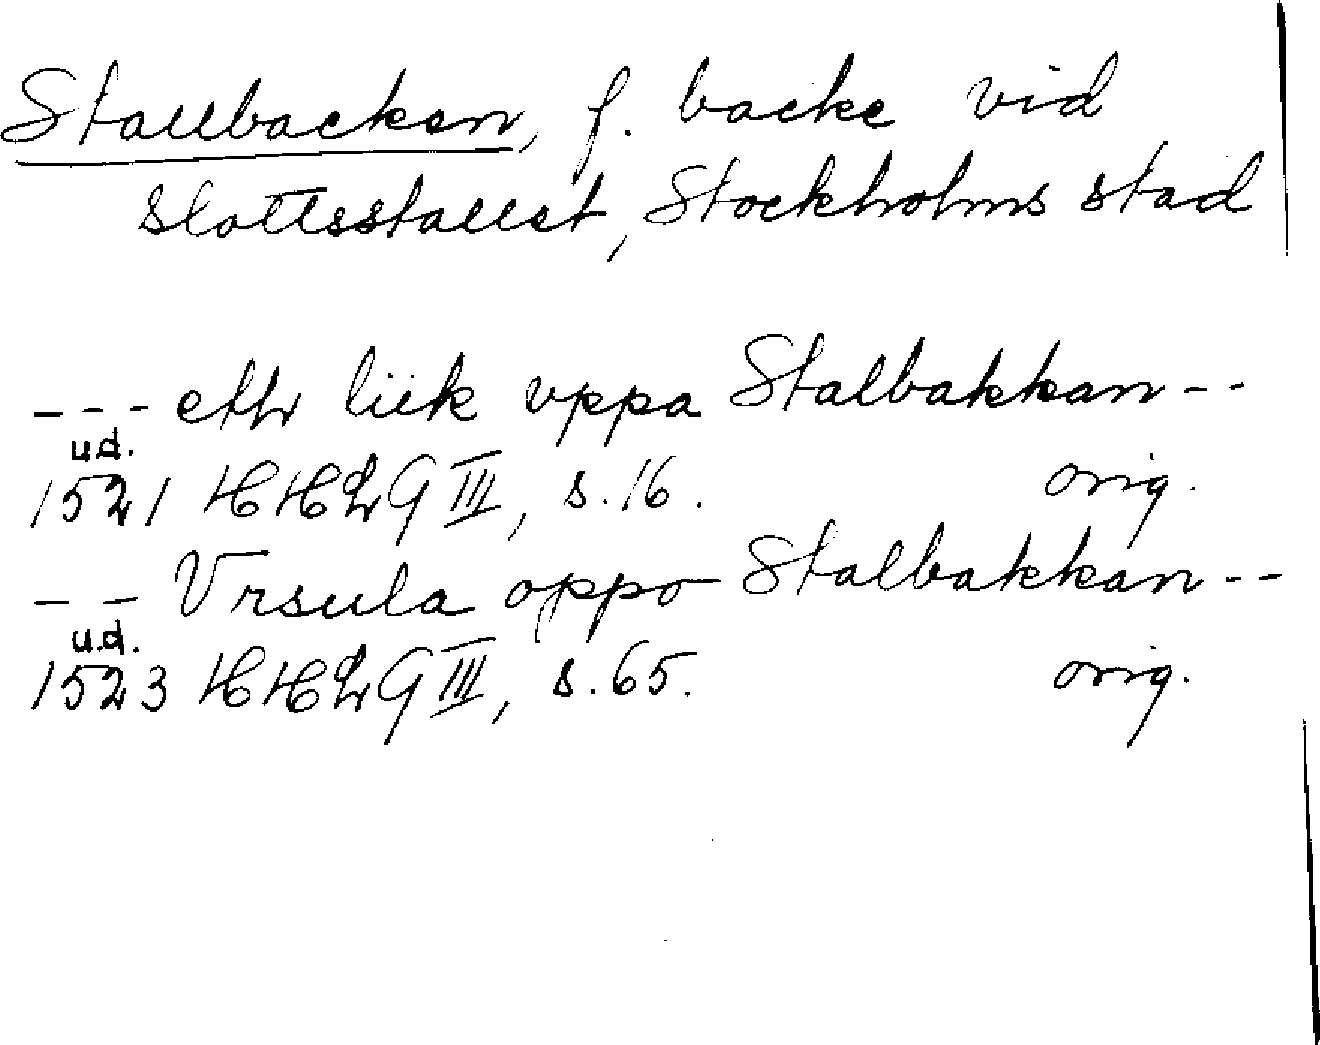 Stallbacken, f. backe vid
slottsstallet, Stockholms stad
--- eth liik vppa Stalbakkan--
u.d.
1521 HHLG III, s. 16. orig.
-- Vrsula oppo Stalbakkan--
u.d.
1523 HHLG III, s. 65. orig.